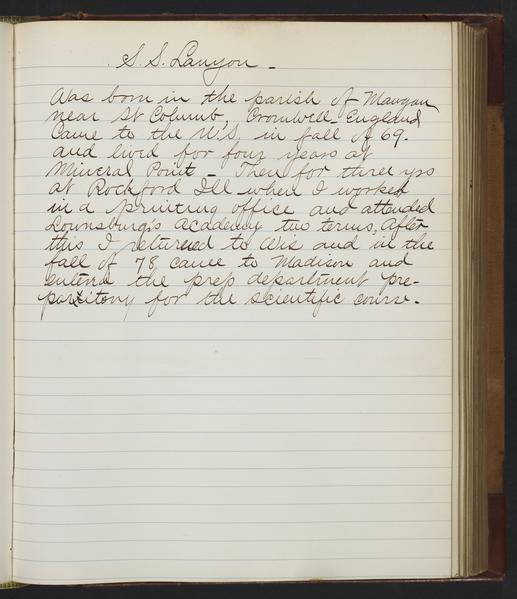 S. S. Lanyon -
Was born in the parish of Mawgan
near St Columb, Cromwell England
Came to the U.S. in fall of 69.
and lived for four years at
Mineral Point - Then for three yrs
at Rockford Ill when I worked
in a printing office and attended
Lownsburg's Academy two terms. After
this I returned to Wis and in the
fall of 78 came to Madison and
entered the prep department pre-
paritory for the scientific course.